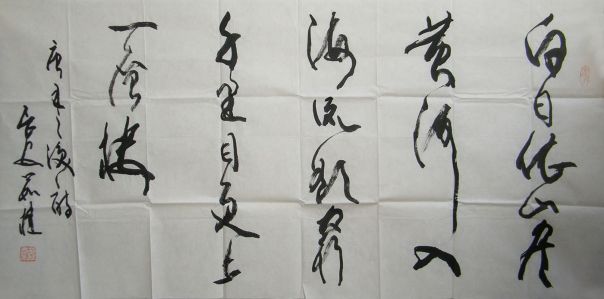 白日依山尽
黄河入
海流欲穷
千里目更上
一层楼
唐王之涣诗